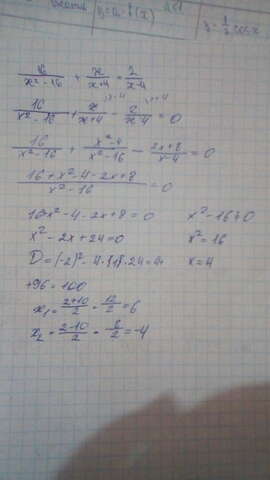 y=a·f(x)
y=1/2 cos x
16/(x²-16) + x/(x+4) = 2/(x-4)
16/(x²-16) + x/(x+4) - 2/(x-4) = 0
16/(x²-16) + (x²-4)/(x²-16) - (2x+8)/(x-4) = 0
(16+x²-4-2x+8)/(x²-16) = 0
16x²-4-2x+8=0 x²-16≠0
x²-2x+24=0 x²=16
D=(-2)²-4·1·24=4+ x=4
+96=100
x₁=(2+10)/2=12/2=6
x₂=(2-10)/2=-8/2=-4